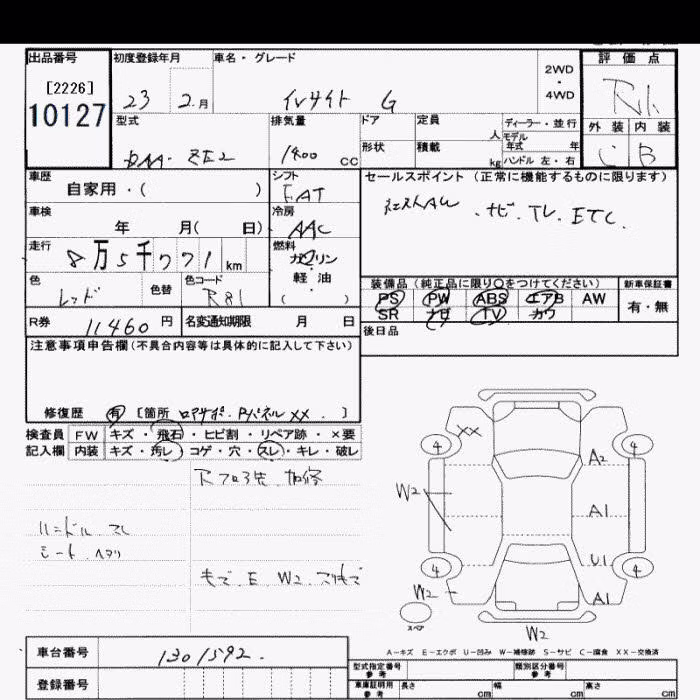 出品番号 初度登録年月 車名・グレード 評価点
[2226]
10127
23 2.月 インサイト G 2WD・4WD
型式 排気量 ドア 定員 人 ディーラー・並行 外装 内装
DAA- ZE2 1400 cc 形状 積載 kg モデル年式 年 C B
ハンドル 左・右
車歴 シフト セールスポイント (正常に機能するものに限ります)
自家用・( ) FAT
車検 冷房 ナビ. TV. ETC.
年 月( 日) AAC
走行 燃料
8万5千771km ガソリン・軽油
( )
色 色替 色コード 装備品 (純正品に限り○をつけてください) 新車保証書
レッド R81 PS PW ABS エアB AW 有・無
SR ナビ TV カワ
R券 11460円 名変通知期限 月 日 後日品
注意事項申告欄(不具合内容等は具体的に記入して下さい)
修復歴 有 [箇所 ロアサポ. Pパネル XX. ]
検査員 FW キズ・飛石・ヒビ割・リペア跡・×要
記入欄 内装 キズ・汚レ・コゲ・穴・スレ・キレ・破レ
ハンドル スレ
シート ヘタリ
E W2
XX
4 4
A2
W2 A1
4 U1 4
W2 A1
スペア
W2
A-キズ E-エクボ U-凹み W-補修跡 S-サビ C-腐食 XX-交換済
車台番号 1301592.
登録番号
型式指定番号参考 類別区分番号参考
車庫証明用参考 長さ cm 幅 cm 高さ cm